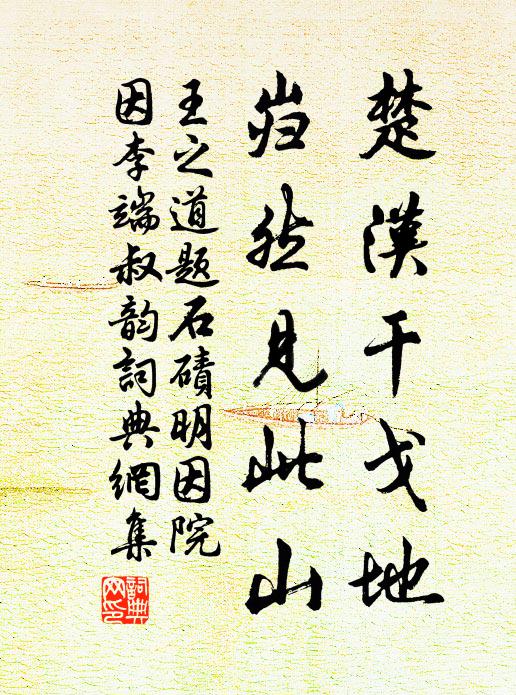 楚漢干戈地
岿然見此山
王之道題石磧明因院
因李端叔韵詞典網集
詞典
网印